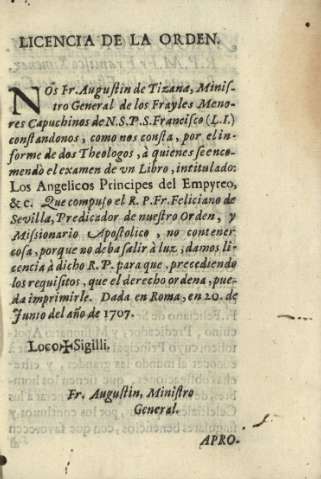 LICENCIA DE LA ORDEN.
NOS Fr. Augustin de Tizana, Minis-
tro General de los Frayles Meno-
res Capuchinos de N.S.P.S. Francisco (L.I.)
constandonos, como nos consta, por el in-
forme de dos Theologos, à quienes se enco-
mendò el examen de vn Libro, intitulado:
Los Angelicos Principes del Empyreo,
&c. Que compuso el R. P. Fr. Feliciano de
Sevilla, Predicador de nuestro Orden, y
Missionario Apostolico, no contener
cosa, porque no deba salir à luz; damos li-
cencia à dicho R. P. para que, precediendo
los requisitos, que el derecho ordena, pue-
da imprimirle. Dada en Roma, en 20. de
Junio del año de 1707.
Loco ✠ Sigilli.
Fr. Augustin, Ministro
General.
APRO-